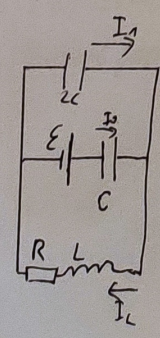 I₁
2C
ε I₂
C
R L
I_L